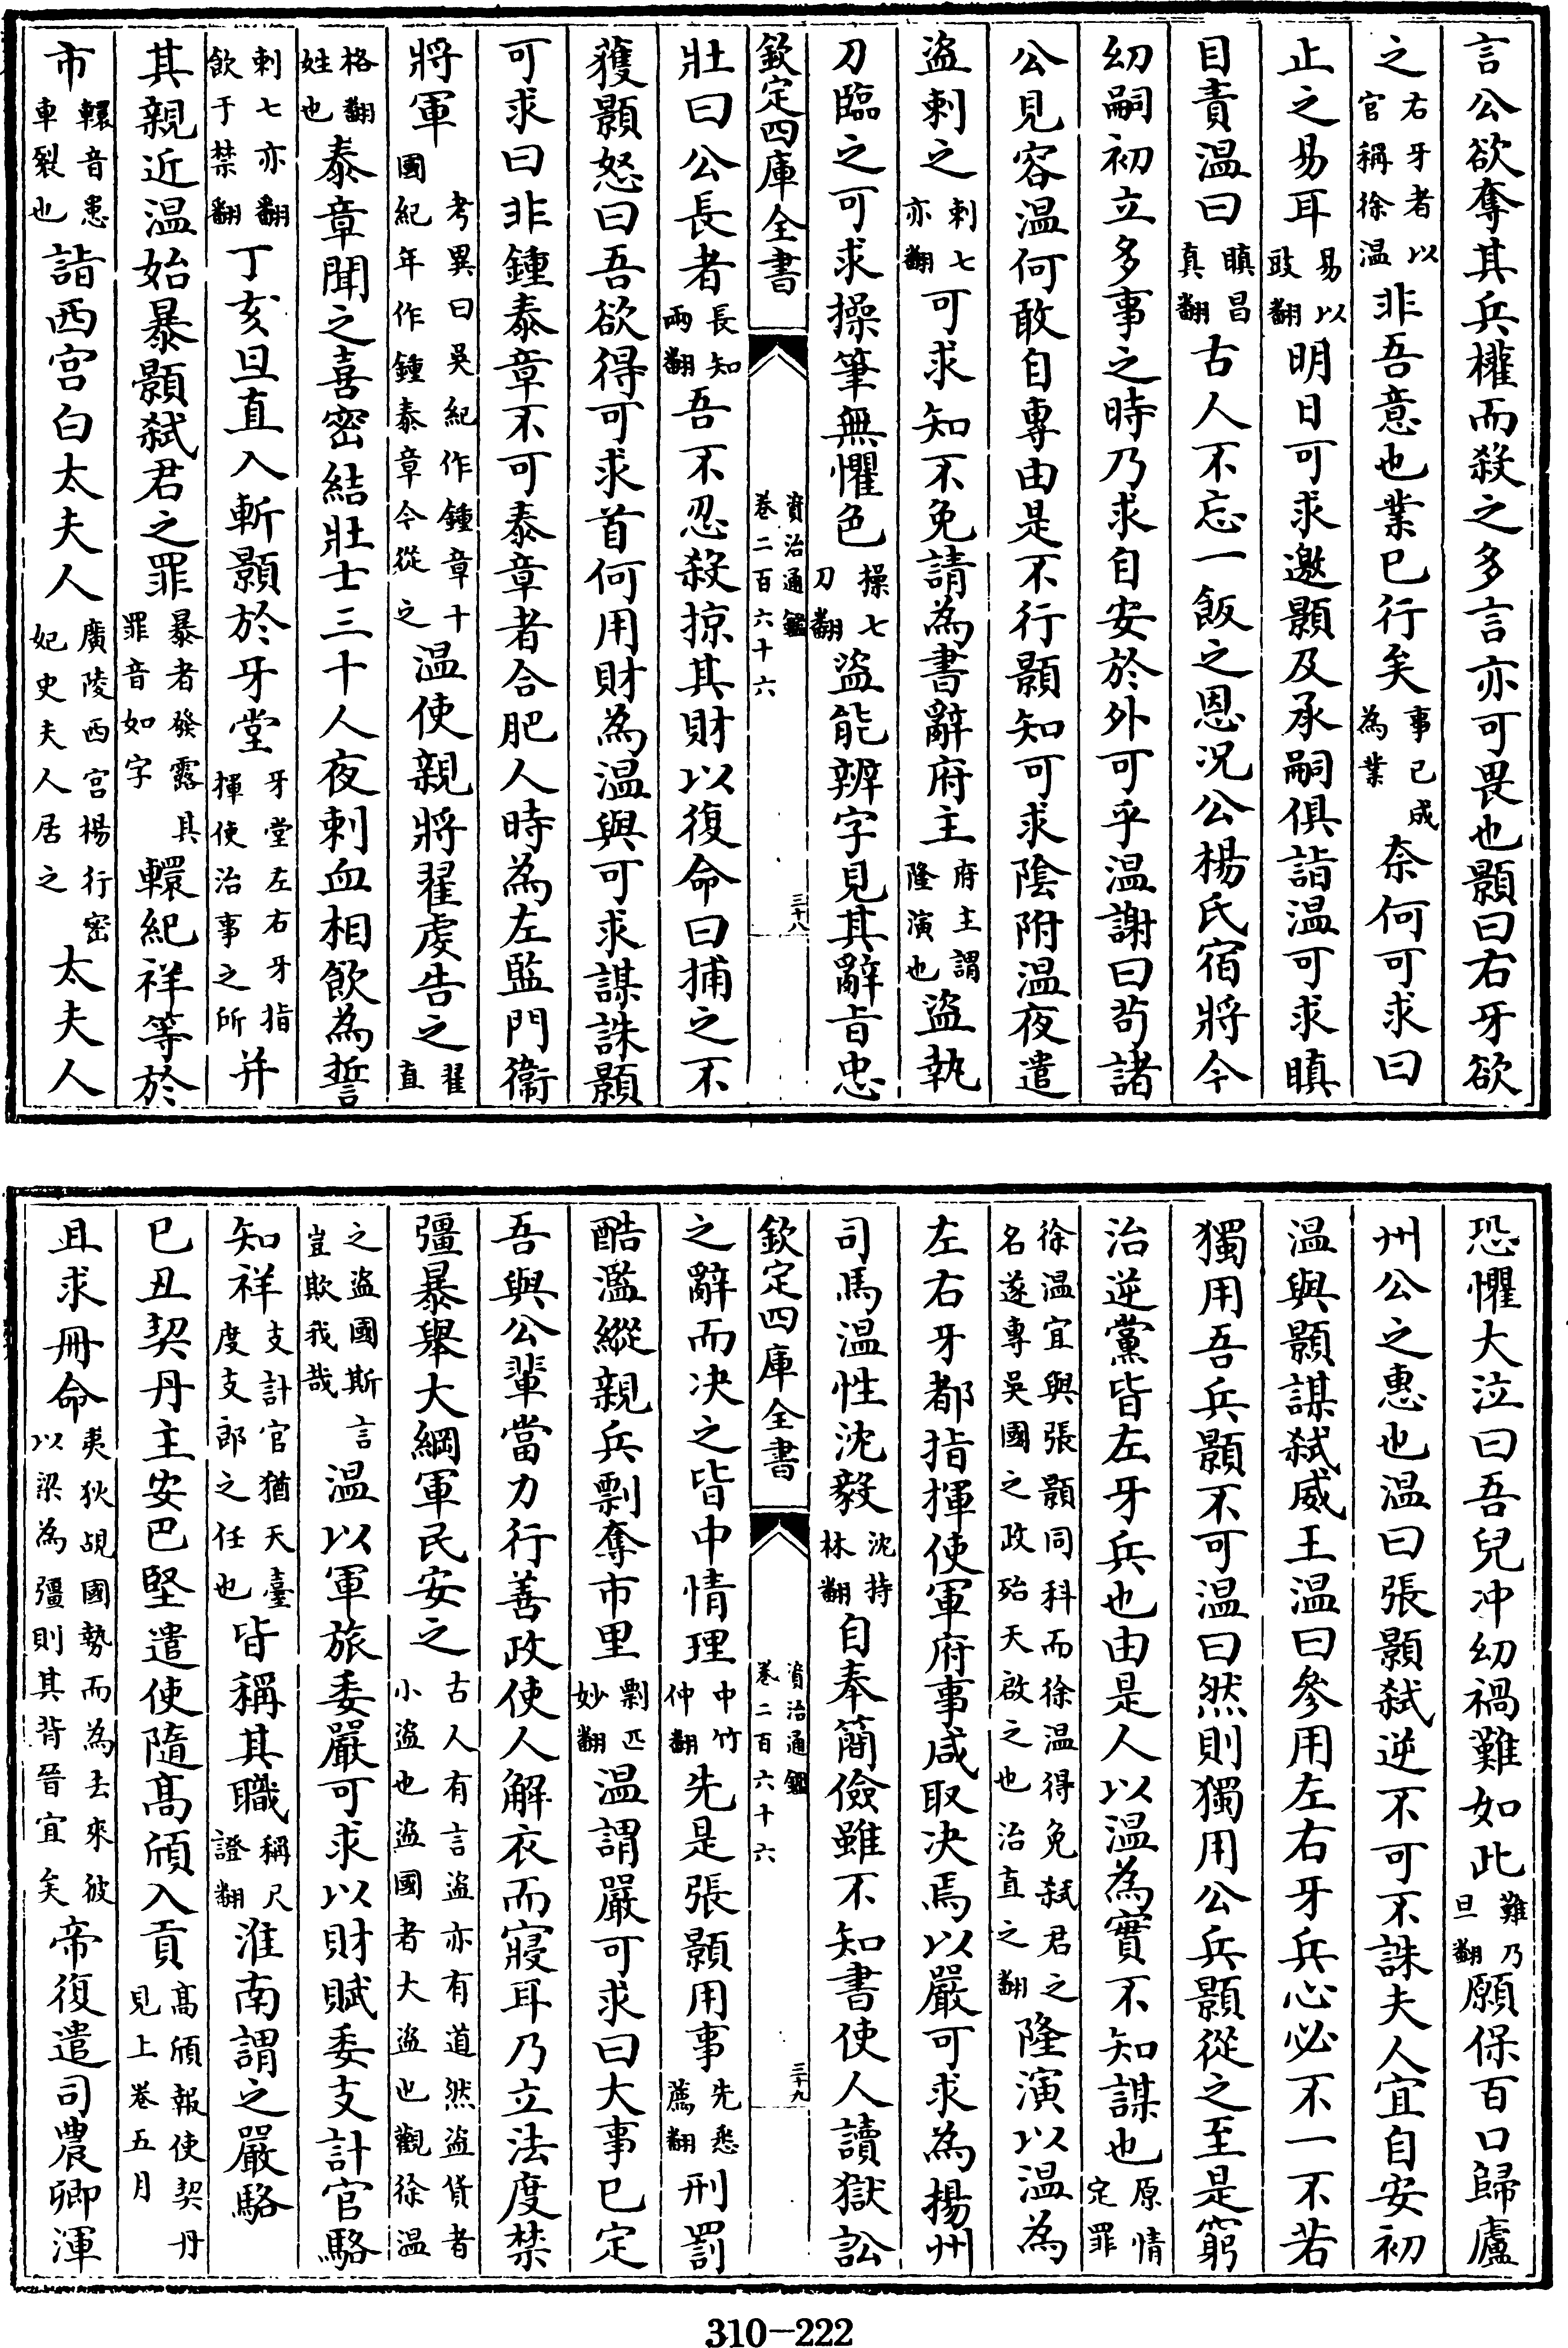 言公欲奪其兵權而殺之多言亦可畏也顥曰右牙欲
之右牙者以官稱徐温非吾意也業已行矣事已成為業奈何可求曰
止之易耳易以豉翻明日可求邀顥及承嗣俱詣温可求瞋
目責温曰瞋昌真翻古人不忘一飯之恩况公楊氏宿將今
幼嗣初立多事之時乃求自安於外可乎温謝曰茍諸
公見容温何敢自專由是不行顥知可求隂附温夜遣
盜刺之刺七亦翻可求知不免請為書辭府主府主謂隆演也盜執
刀臨之可求操筆無懼色操七刀翻盜能辨字見其辭旨忠
欽定四庫全書
資治通鑑卷二百六十六
三十八
壯曰公長者長知兩翻吾不忍殺掠其財以復命曰捕之不
獲顥怒曰吾欲得可求首何用財為温與可求謀誅顥
可求曰非鍾泰章不可泰章者合肥人時為左監門衛
將軍考異曰吳紀作鍾章十國紀年作鍾泰章今從之温使親將翟䖍告之翟直
格翻姓也泰章聞之喜密結壯士三十人夜刺血相飲為誓
刺七亦翻飲于禁翻丁亥旦直入斬顥於牙堂牙堂左右牙指揮使治事之所并
其親近温始暴顥弑君之罪暴者發露其罪音如字轘紀祥等於
市轘音患車裂也詣西宫白太夫人廣陵西宫楊行密妃史夫人居之太夫人
恐懼大泣曰吾兒冲幼禍難如此難乃旦翻願保百口歸廬
州公之惠也温曰張顥弑逆不可不誅夫人宜自安初
温與顥謀弑威王温曰參用左右牙兵心必不一不若
獨用吾兵顥不可温曰然則獨用公兵顥從之至是窮
治逆黨皆左牙兵也由是人以温為實不知謀也原情定罪
徐温宜與張顥同科而徐温得免弑君之名遂專吳國之政殆天啟之也治直之翻隆演以温為
左右牙都指揮使軍府事咸取决焉以嚴可求為揚州
司馬温性沈毅沈持林翻自奉簡儉雖不知書使人讀獄訟
欽定四庫全書
資治通鑑卷二百六十六
三十九
之辭而决之皆中情理中竹仲翻先是張顥用事先悉薦翻刑罰
酷濫縱親兵剽奪市里剽匹妙翻温謂嚴可求曰大事已定
吾與公輩當力行善政使人解衣而寢耳乃立法度禁
彊暴舉大綱軍民安之古人有言盜亦有道然盜貨者小盜也盜國者大盜也觀徐温
之盜國斯言豈欺我哉温以軍旅委嚴可求以財賦委支計官駱
知祥支計官猶天臺度支郎之任也皆稱其職稱尺證翻淮南謂之嚴駱
已丑契丹主安巴堅遣使隨髙頎入貢髙頎報使契丹見上卷五月
且求冊命夷狄覘國勢而為去來彼以梁為彊則其背晉宜矣帝復遣司農卿渾
310-222